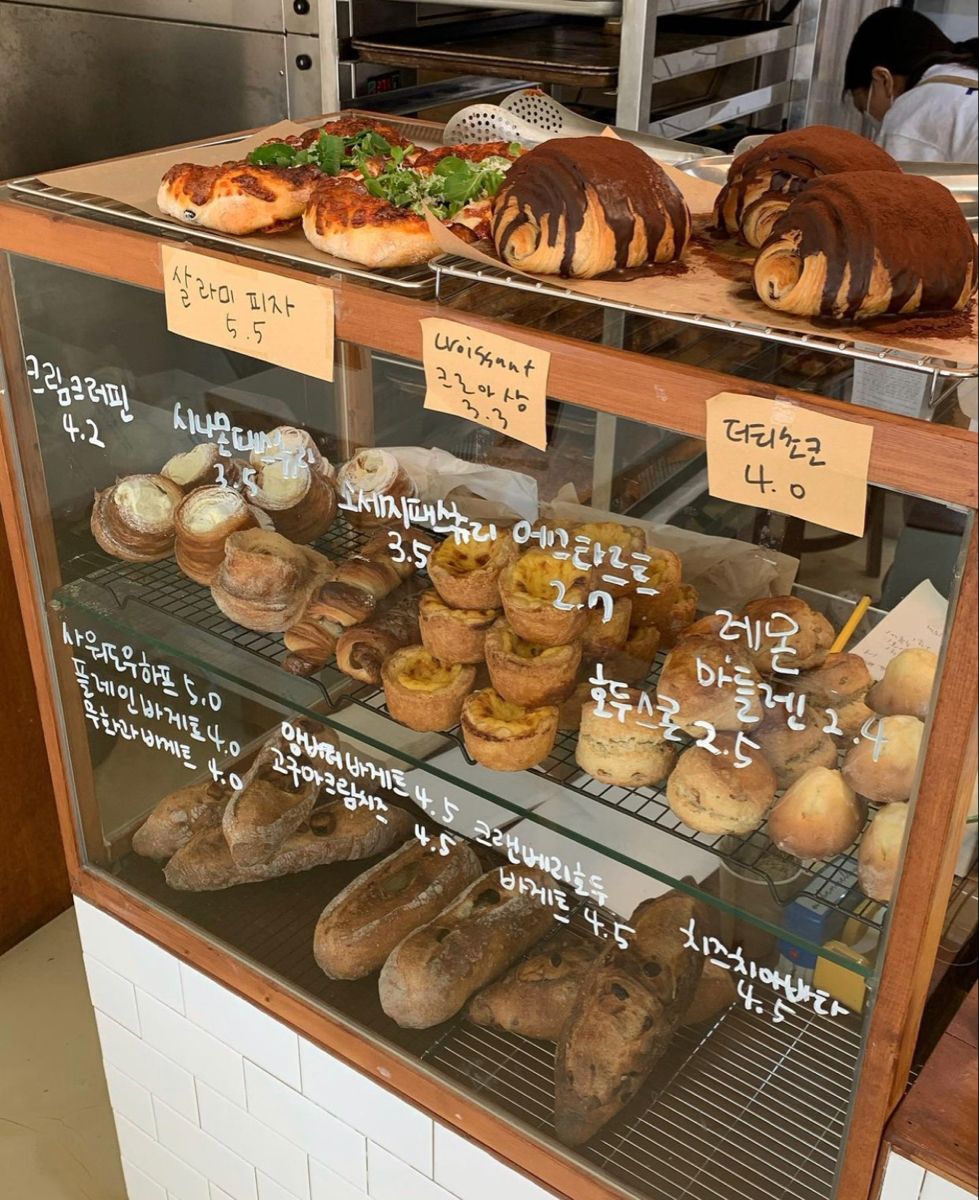 살라미 피자
5.5
croissant
크로아상
3.3
더티쵸코
4.0
크림크러핀
4.2
시나몬패슈츄리
3.5
소세지패슈츄리
3.5
에그타르트
2.7
레몬
마들렌 2.4
호두스콘
2.5
사워도우하프 5.0
플레인바게트 4.0
무화과바게트 4.0
앙버터바게트 4.5
고구마크림치즈
4.5
크랜베리호두
바게트 4.5
치즈치아바타
4.5